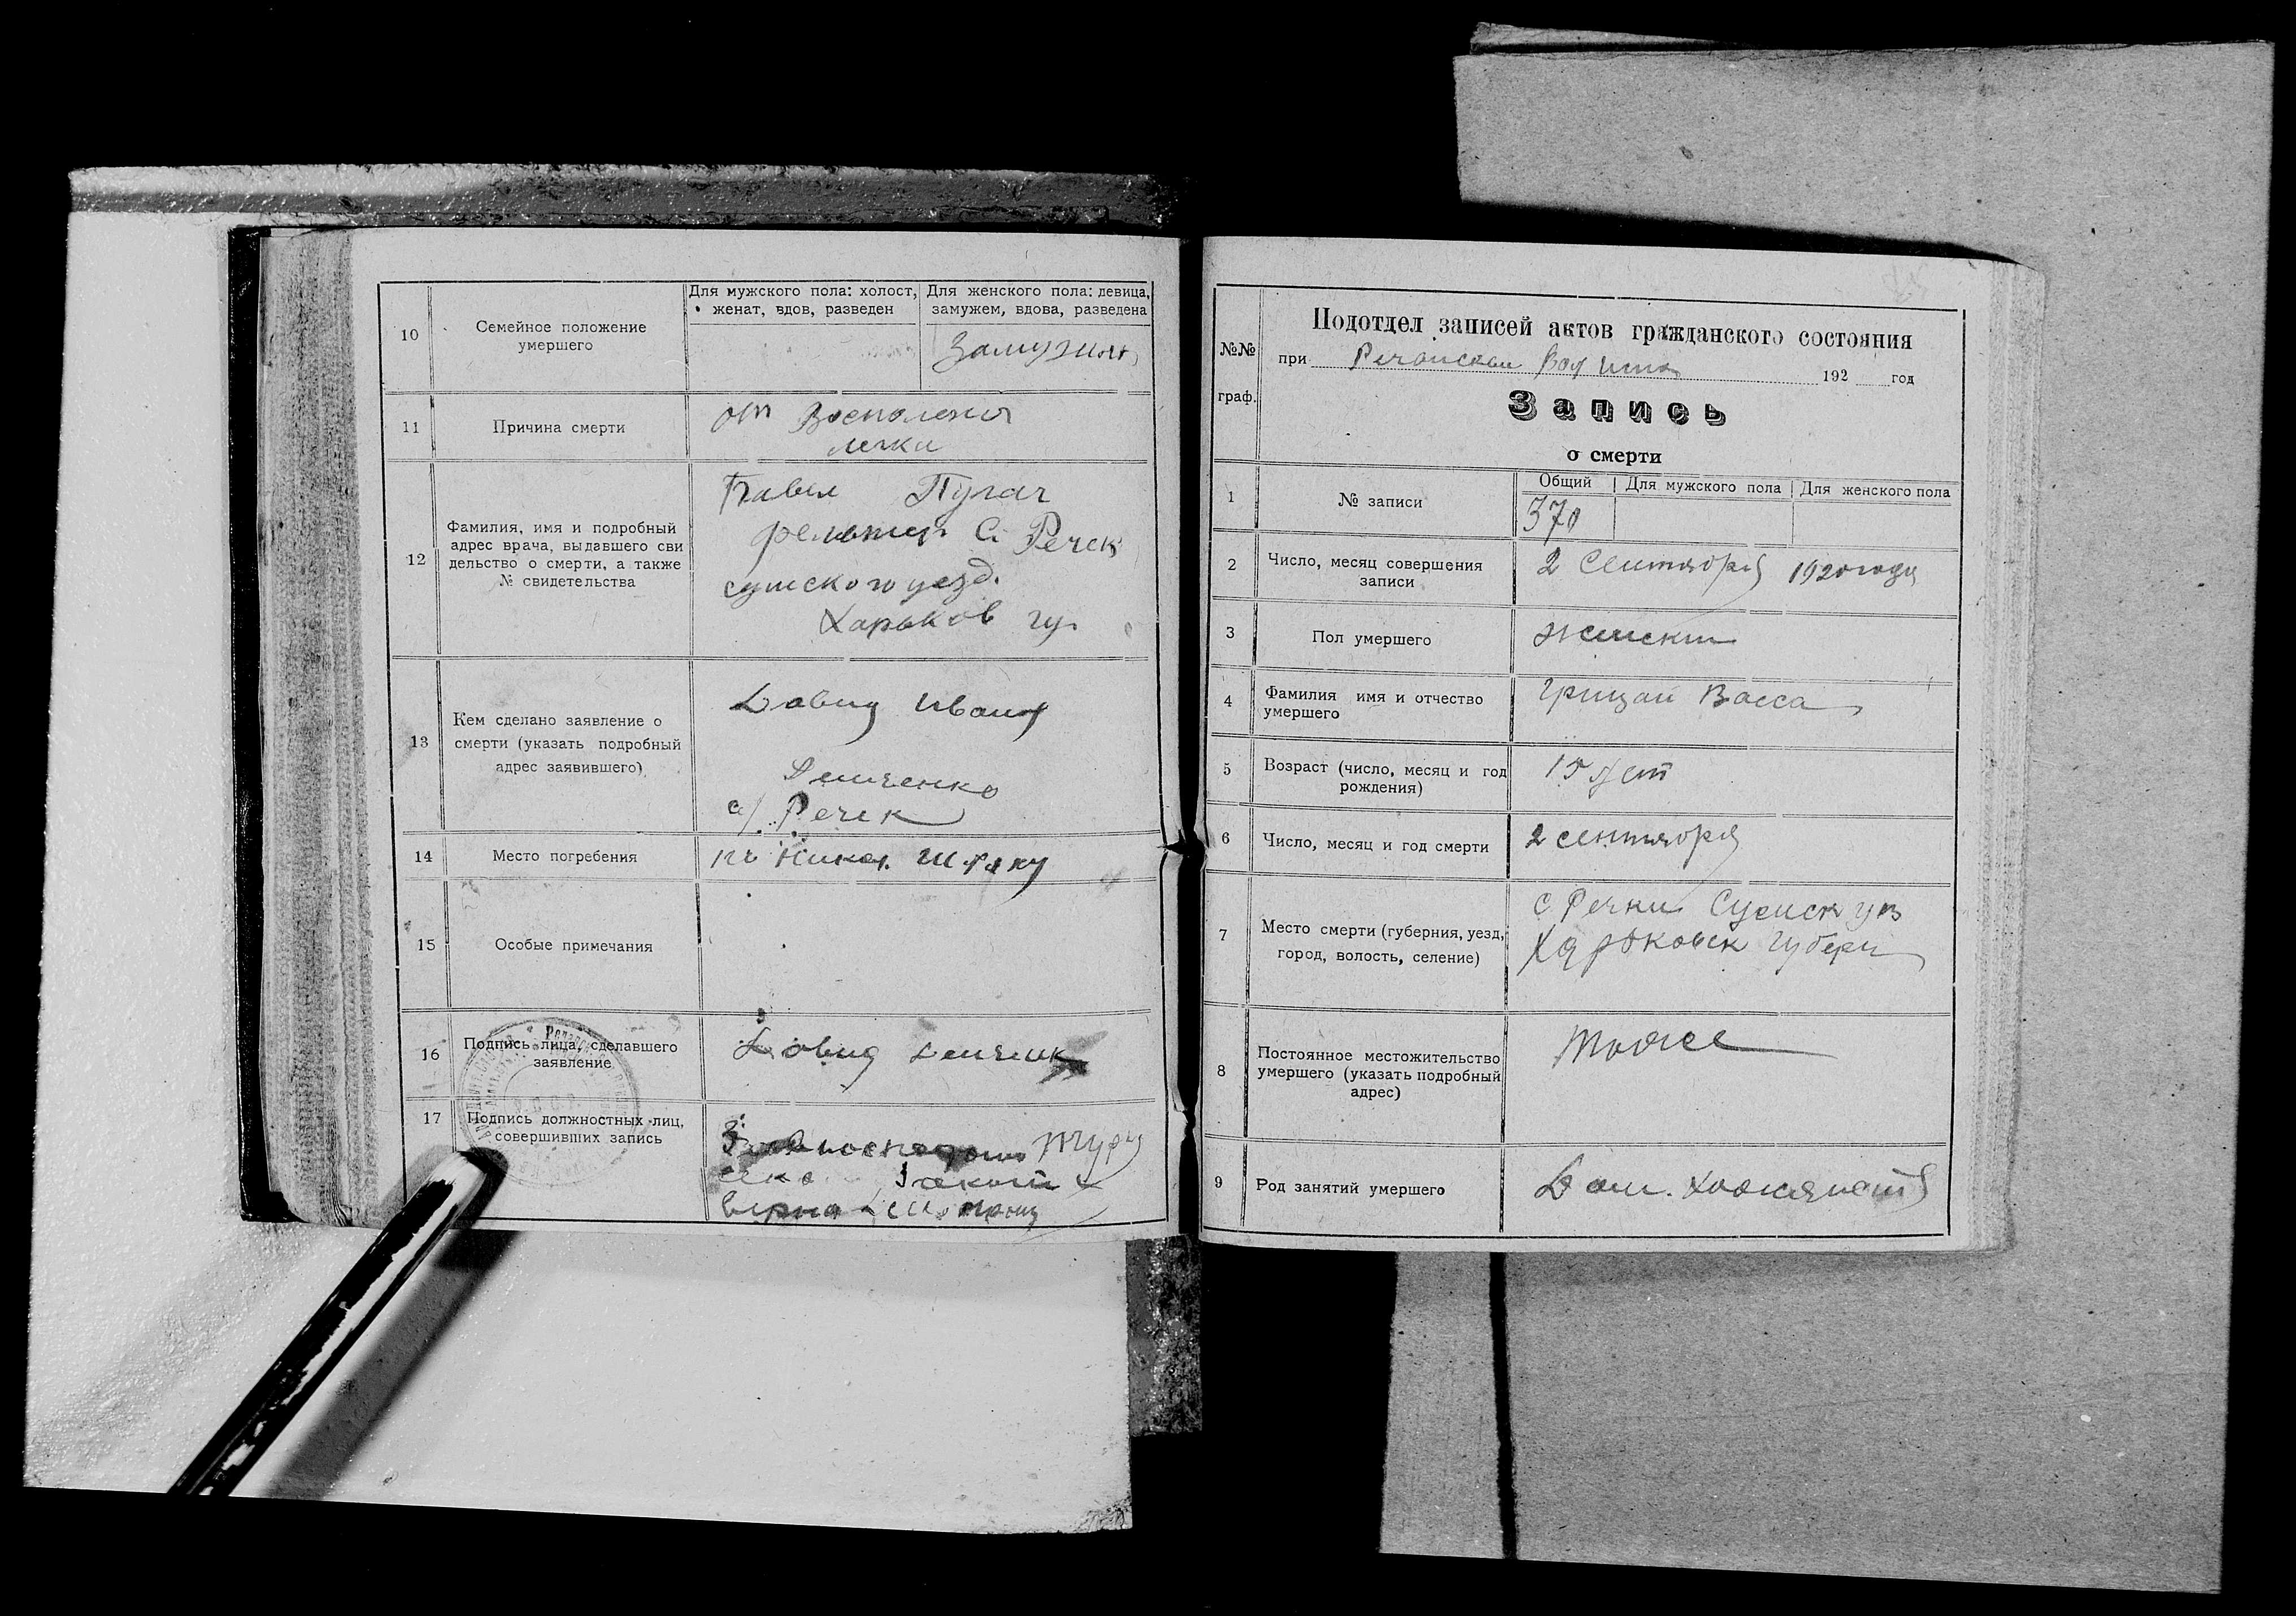 10
Семейное положение
умершего
Для мужского пола: холост,
женат, вдов, разведен
Для женского пола: девица,
замужем, вдова, разведена
11
Причина смерти
от Восполения
12
Фамилия, имя и подробный
адрес врача, выдавшего сви
дельство о смерти, а также
№ свидетельства
Павел Пугач
С. Речек
сумского уезд.
Харьков гу.
13
Кем сделано заявление о
смерти (указать подробный
адрес заявившего)
Давид Иванов
Демченко
с/ Речек
14
Место погребения
15
Особые примечания
16
Подпись лица, сделавшего
заявление
Давид
17
Подпись должностных лиц,
совершивших запись
верно
№№
граф.
Подотдел записей актов гражданского состояния
при 192 год
Запись
о смерти
1
№ записи
Общий
Для мужского пола
Для женского пола
370
2
Число, месяц совершения
записи
2 Сентября 1920 года
3
Пол умершего
женский
4
Фамилия имя и отчество
умершего
Грицай Васса
5
Возраст (число, месяц и год
рождения)
лет
6
Число, месяц и год смерти
2 сентября
7
Место смерти (губерния, уезд,
город, волость, селение)
с. Речки Сумск уез
Харьковск губерн
8
Постоянное местожительство
умершего (указать подробный
адрес)
Тоже
9
Род занятий умершего
Дом.